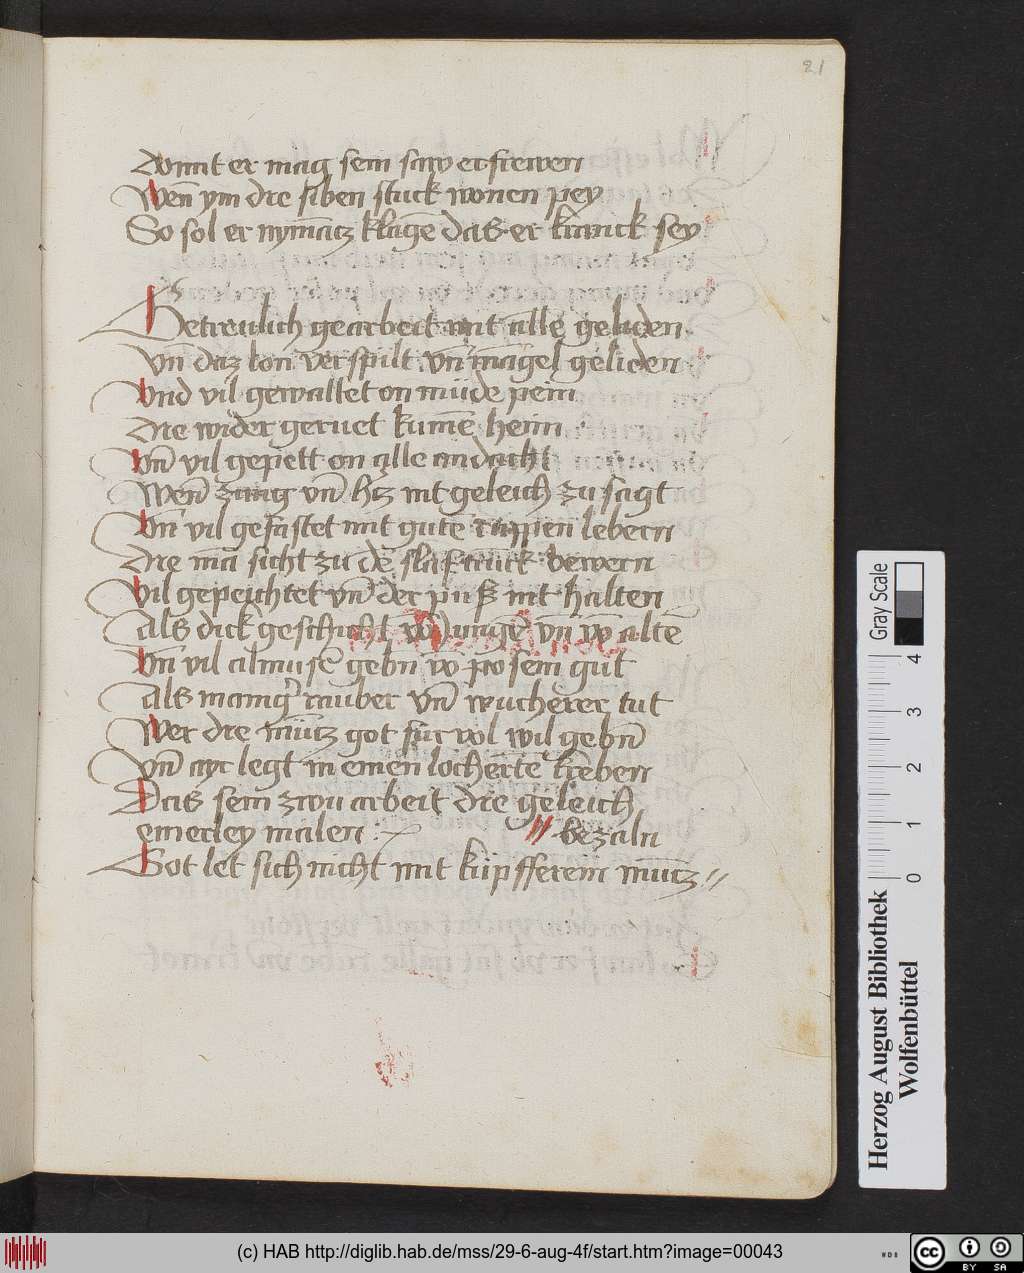 21
Domit er mag sein saw erfrewen
Wen̄ ym dye siben stuck wonen pey
So sol er nyma͞tz klage͞ das er kranck sey
Getreulich gearbeit mit alle͞ geliden
Vn̄ daz lon verspilt vn̄ mangel geliden
Vnd vil gewallet on müde pein
Dye wider geruet kume͞ heim
Vn̄ vil gepett on alle andacht
Wen̄ zung vn̄ hʒ nit geleich zu sagt
Vn̄ vil gefastet mit gute͞ rappen lebern
Dye ma͞ sicht zu de͞ slaftruck bewern
Vil gepeichtet vn̄ der puß nit halten
Als dick geschicht vo͞ iunge͞ vn̄ vo͞ alte͞
Vn̄ vil almuse͞ gebn̄ vo͞ posem gut
Als manig' rauber vn̄ wucherer tut
Wer dye müntz got für vol wil gebn̄
Vn̄ ayr legt in einen locherte͞ kreben
Das sein zwu arbeit dye geleich
einerley malen bezaln
Got let sich nicht mit küpfferein müntz
Herzog August Bibliothek
Wolfenbüttel
Gray Scale
0 1 2 3 4
(c) HAB http://diglib.hab.de/mss/29-6-aug-4f/start.htm?image=00043
WDB
cc BY SA